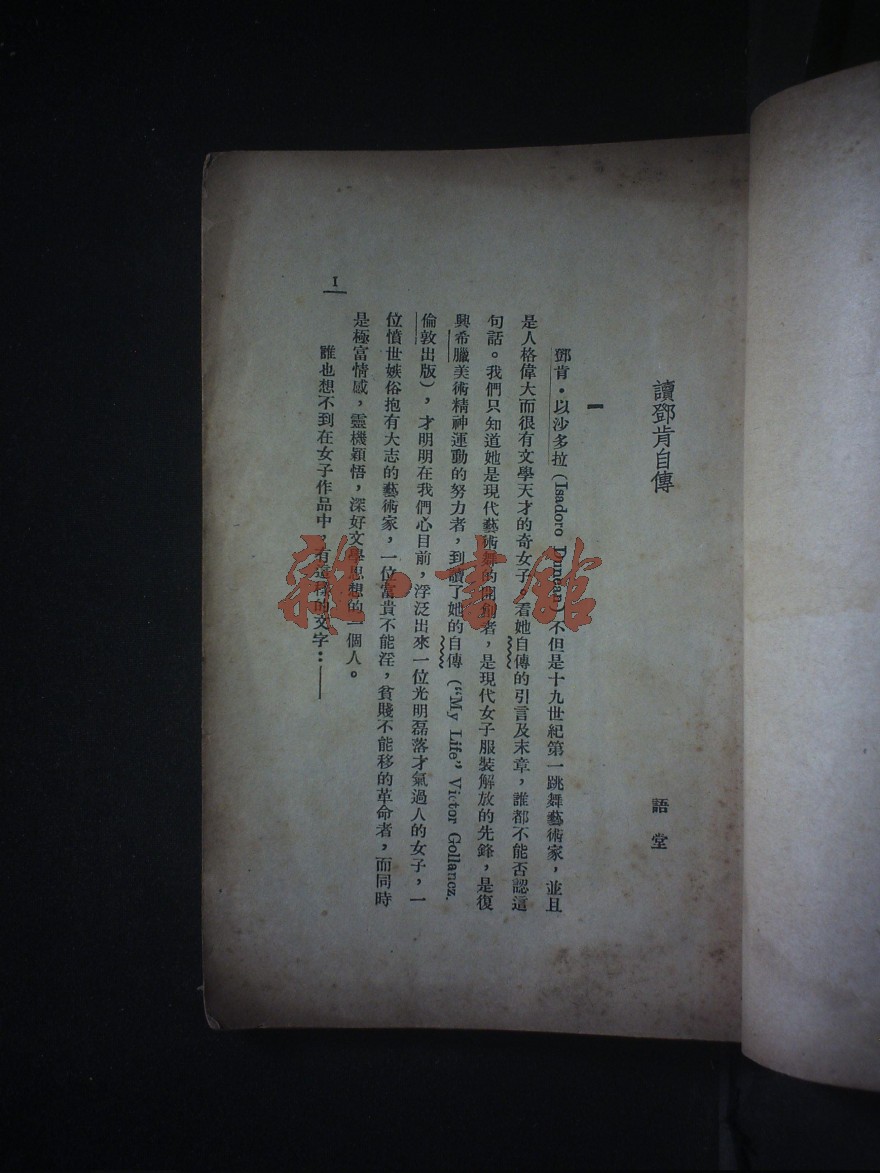 讀鄧肯自傳
語堂
一
鄧肯・以沙多拉 (Isadoro Duncan) 不但是十九世紀第一跳舞藝術家，並且
是人格偉大而很有文學天才的奇女子。看她自傳的引言及末章，誰都不能否認這
句話。我們只知道她是現代藝術舞的開創者，是現代女子服裝解放的先鋒，是復
興希臘美術精神運動的努力者，到讀了她的自傳 (“My Life” Victor Gollancz,
倫敦出版)，才明明在我們心目前，浮泛出來一位光明磊落才氣過人的女子，一
位憤世嫉俗抱有大志的藝術家，一位富貴不能淫，貧賤不能移的革命者，而同時
是極富情感，靈機穎悟，深好文學思想的一個人。
誰也想不到在女子作品中，有這樣的文字：——
1
雜・書館